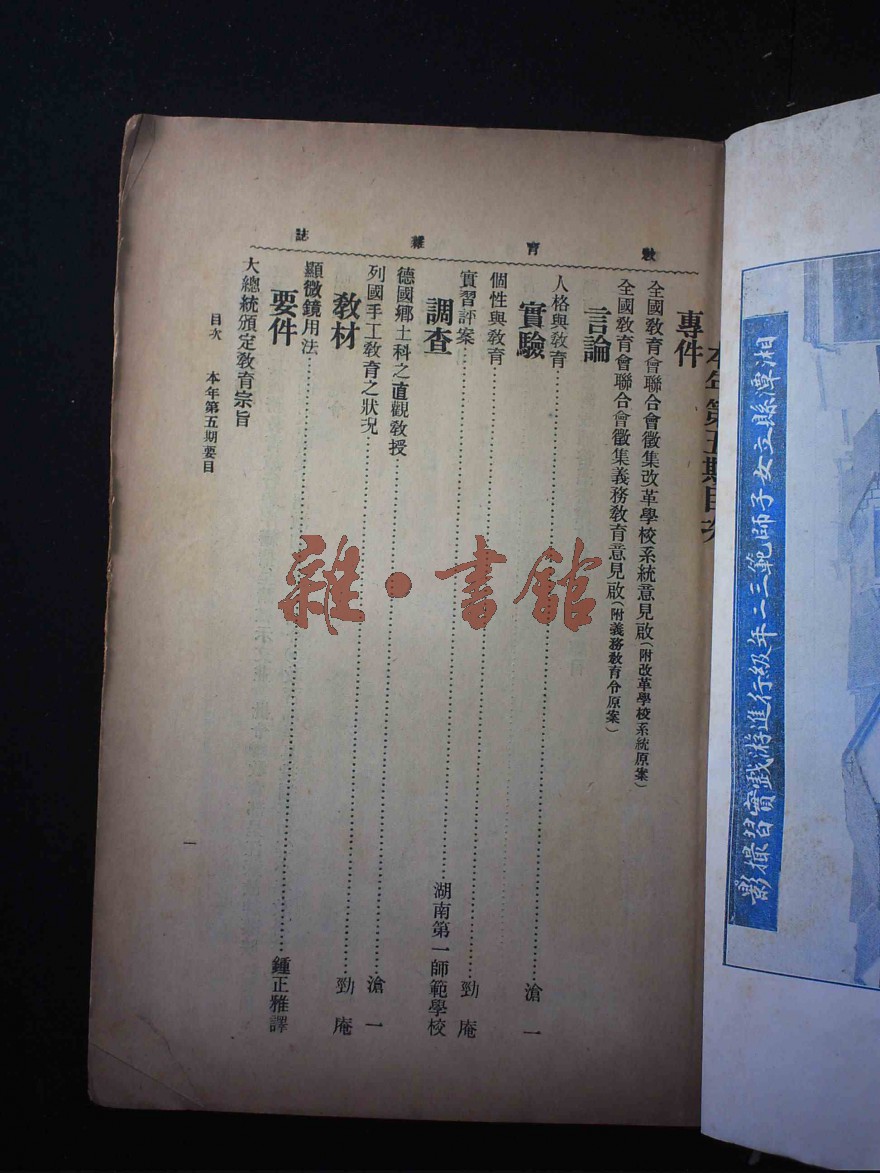 湘潭縣立女子師範三二年級行進游戲實習攝影
教育雜誌
本年第五期目次
專件
全國教育會聯合會徵集改革學校系統意見啟（附改革學校系統原案）
全國教育會聯合會徵集義務教育意見啟（附義務教育令原案）
言論
人格與教育……滄一
實驗
個性與教育……勁庵
實習評案……湖南第一師範學校
調查
德國鄉土科之直觀教授……滄一
列國手工教育之狀況……勁庵
教材
顯微鏡用法……鍾正雅譯
要件
大總統頒定教育宗旨
目次 本年第五期要目
一
雜·書館